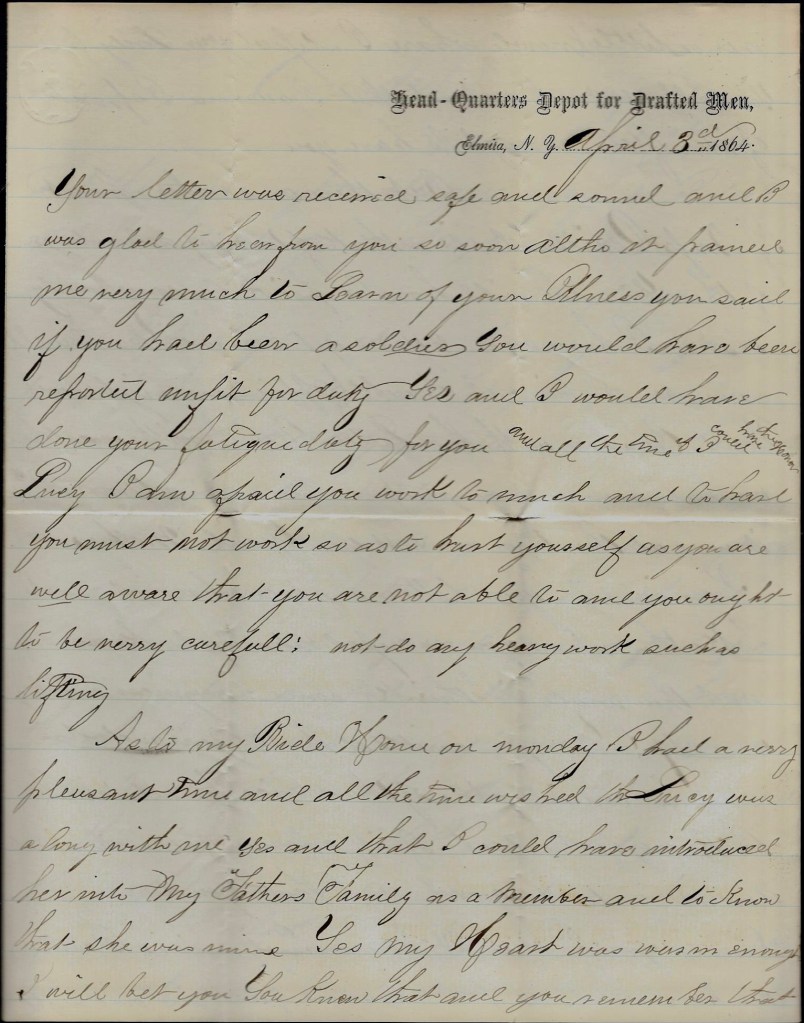 Head-Quarters Depot for Drafted Men,
Elmira, N. Y. April 3d 1864.
Your letter was received safe and sound and I
was glad to hear from you so soon altho it pained
me very much to Learn of your Illness you said
if you had been a soldier You would have been
reported unfit for duty Yes and I would have
done your fatigue duty for you and all the time if I could have the honor
Lucy I am afraid you work to much and to hard
you must not work so as to hurt yourself as you are
well aware that you are not able to and you ought
to be verry carefull; not do any heavy work such as
lifting
As to my Ride Home on monday I had a verry
pleasant time and all the time wished th Lucy was
along with me Yes and that I could have introduced
her into My Fathers Family as a member and to Know
that she was mine Yes My Heart was warm enough
I will bet you You Know that and you remember that